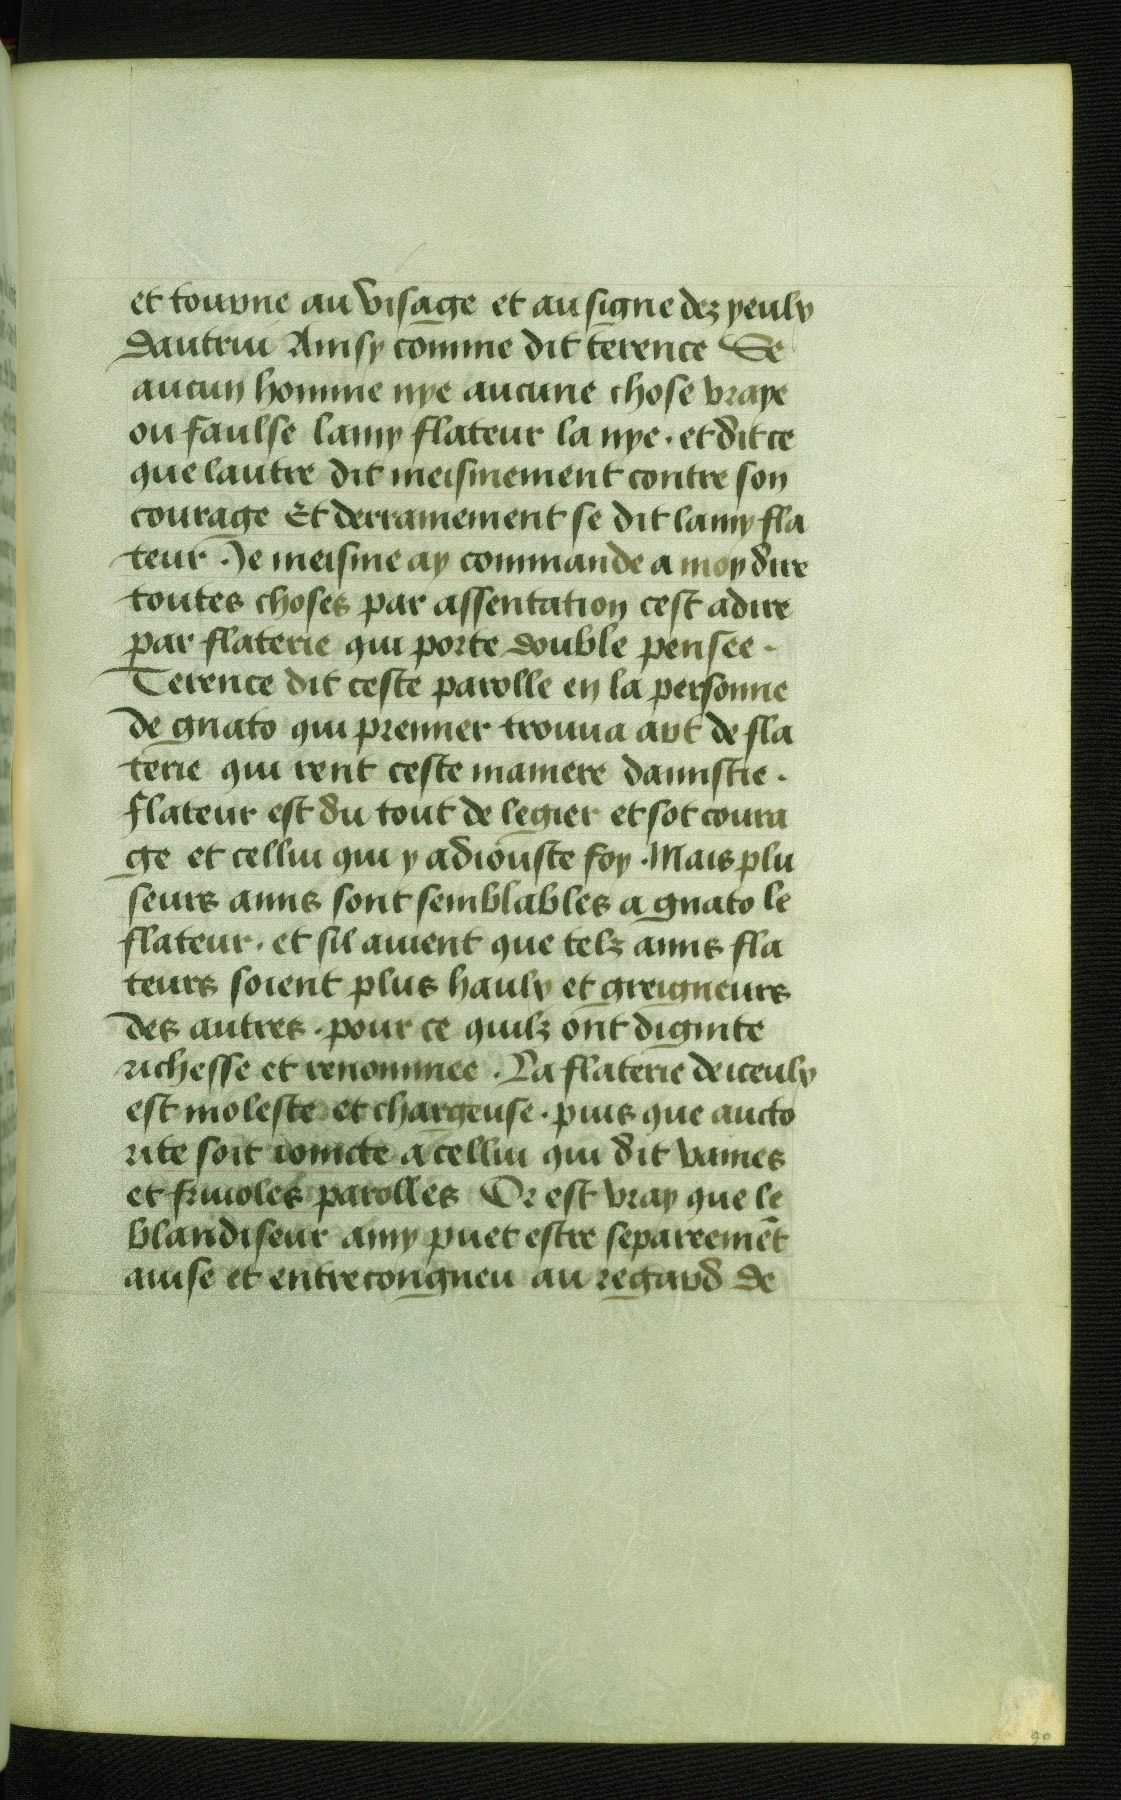 et tourne au visage et au signe dez yeulx
dautrui Ainsy comme dit terence Se
aucun homme nye aucune chose vraye
ou faulse lamy flateur la nye . et dit ce
que lautre dit meismement contre son
courage Et derrainement se dit lamy fla
teur . Je meisme ay commande a moy dire
toutes choses par assentation cest adire
par flaterie qui porte double pensee .
Terence dit ceste parolle en la personne
de gnato qui premier trouua art de fla
terie qui rent ceste maniere damistie .
flateur est du tout de legier et sot coura
ge et cellui qui y adiouste foy . Mais plu
seurs amis sont semblables a gnato le
flateur . et sil auient que telz amis fla
teurs soient plus haulx et greigneurs
des autres . pour ce quilz ont dignite
richesse et renommee . La flaterie de iceulx
est moleste et chargeuse . puis que aucto
rite soit ioincte a cellui qui dit vaines
et friuoles parolles Or est vray que le
blandiseur amy puet estre separeemēt
auise et entrecongneu au regard de
90